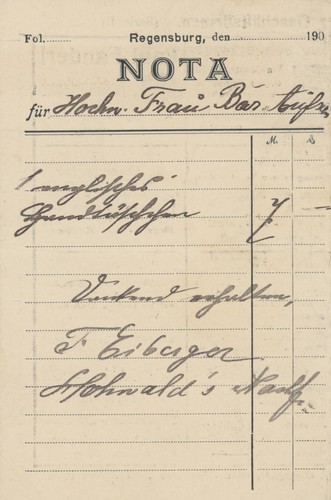 Fol. Regensburg, den 190
NOTA
für Hochw. Frau Bar. Aufseß
M. ₰
1 englisches
Handtäschchen 7 —
Dankend erhalten,
F. Eiberger
Hohwald's Nachf.